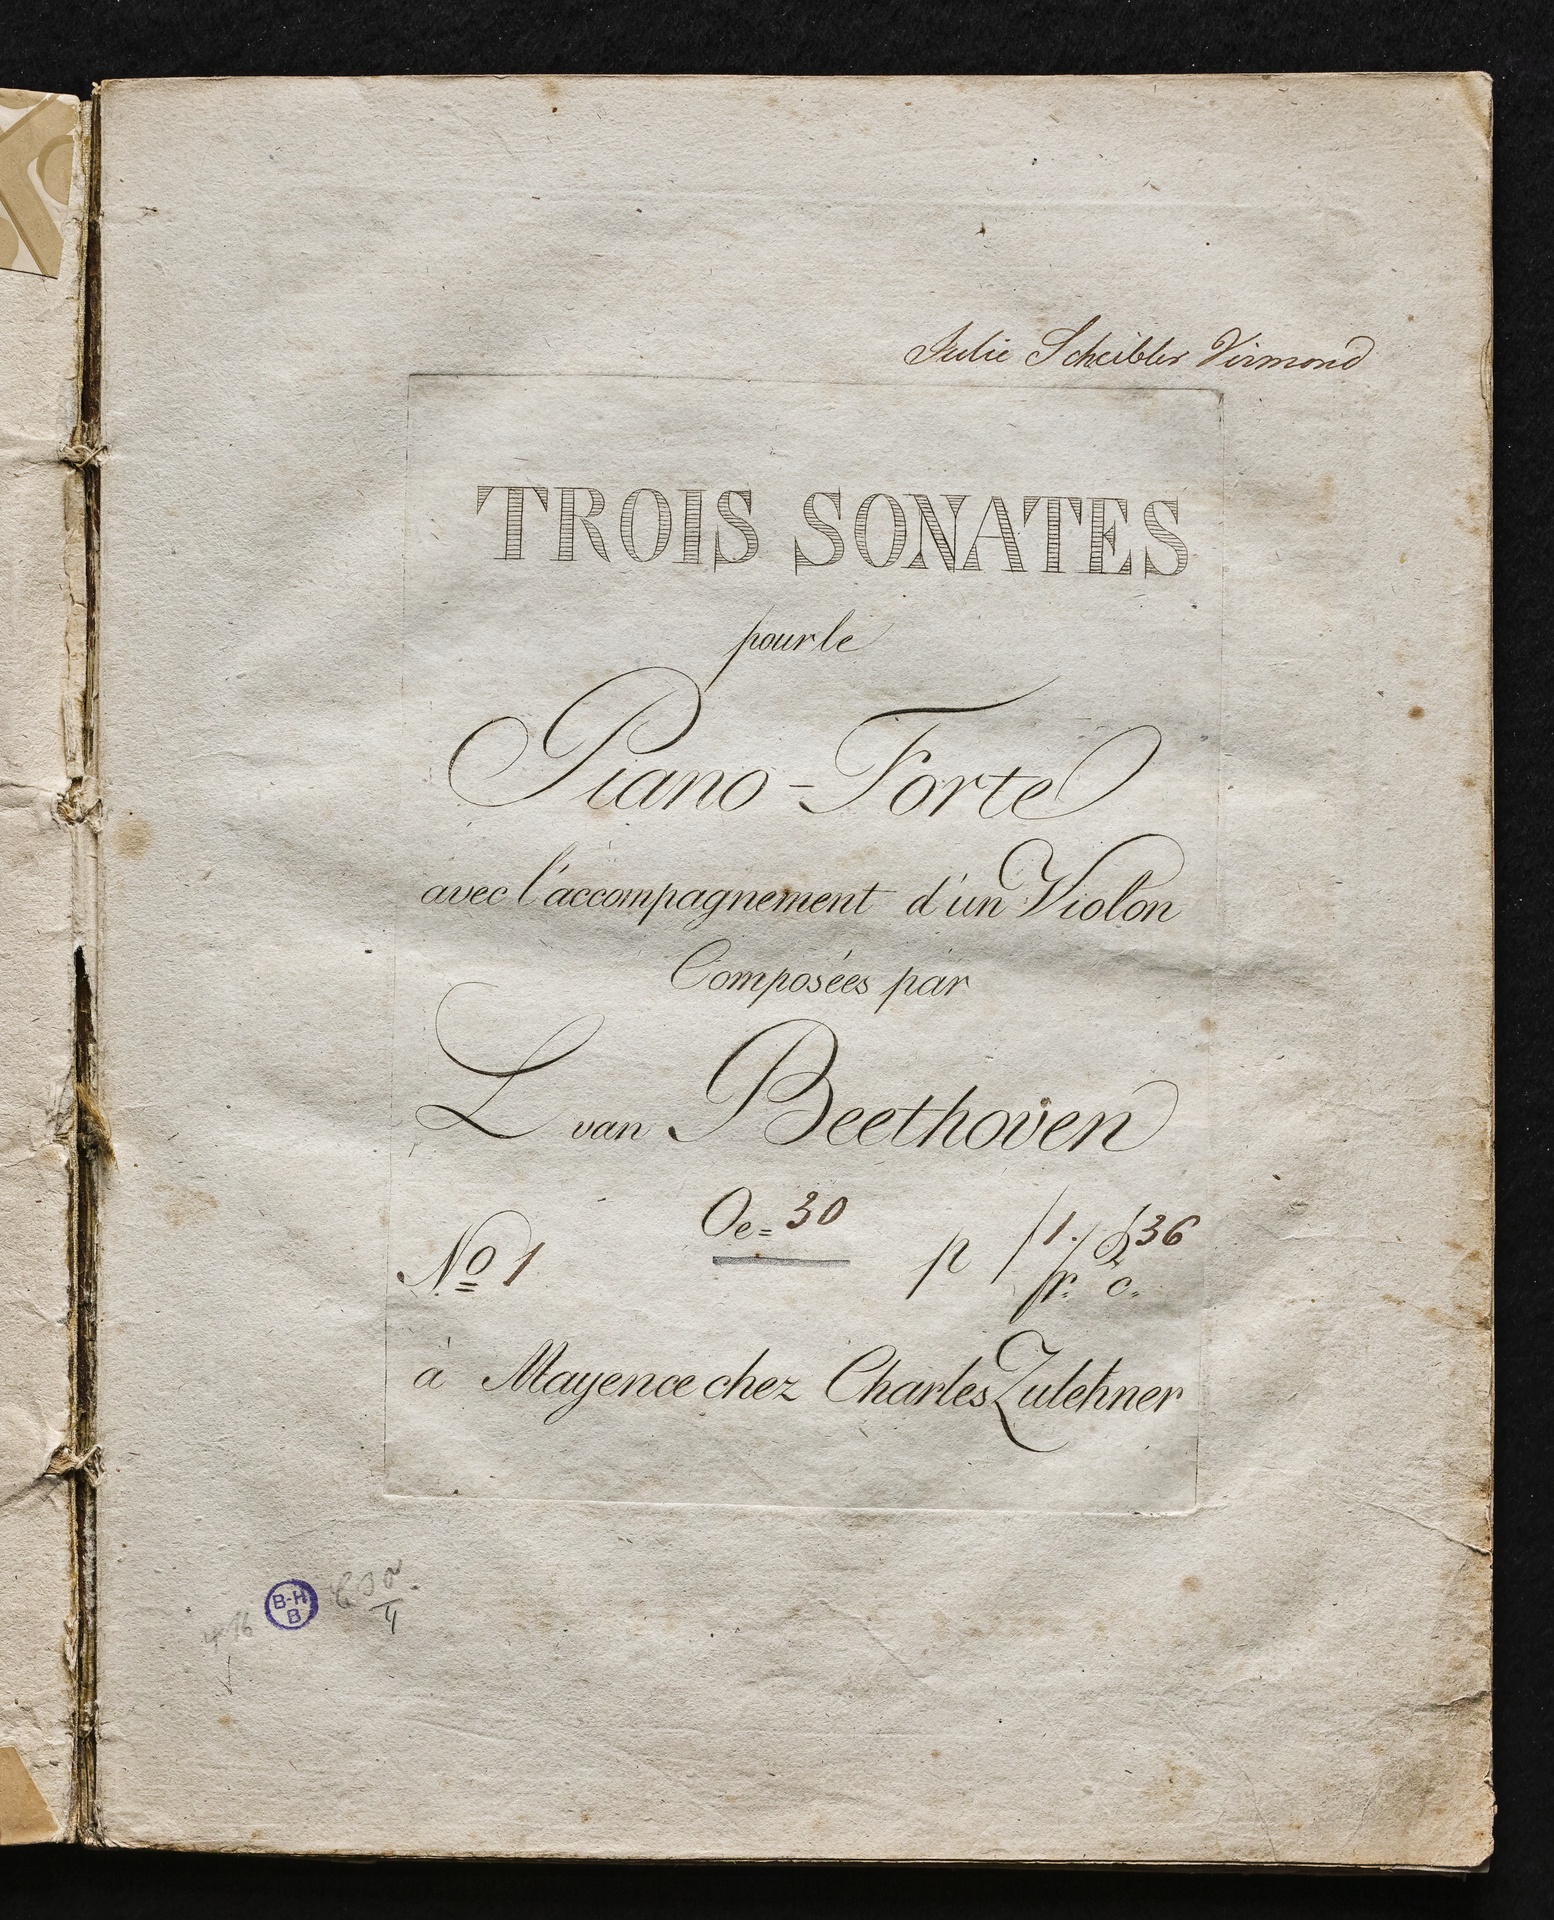 Julie Scheibler Virmond
TROIS SONATES
pour le
Piano-Forte
avec l'accompagnement d'un Violon
Composées par
L van Beethoven
Oe= 30
No 1 p f 1. / x 36
fr. c.
à Mayence chez Charles Zulehner
B-H
B